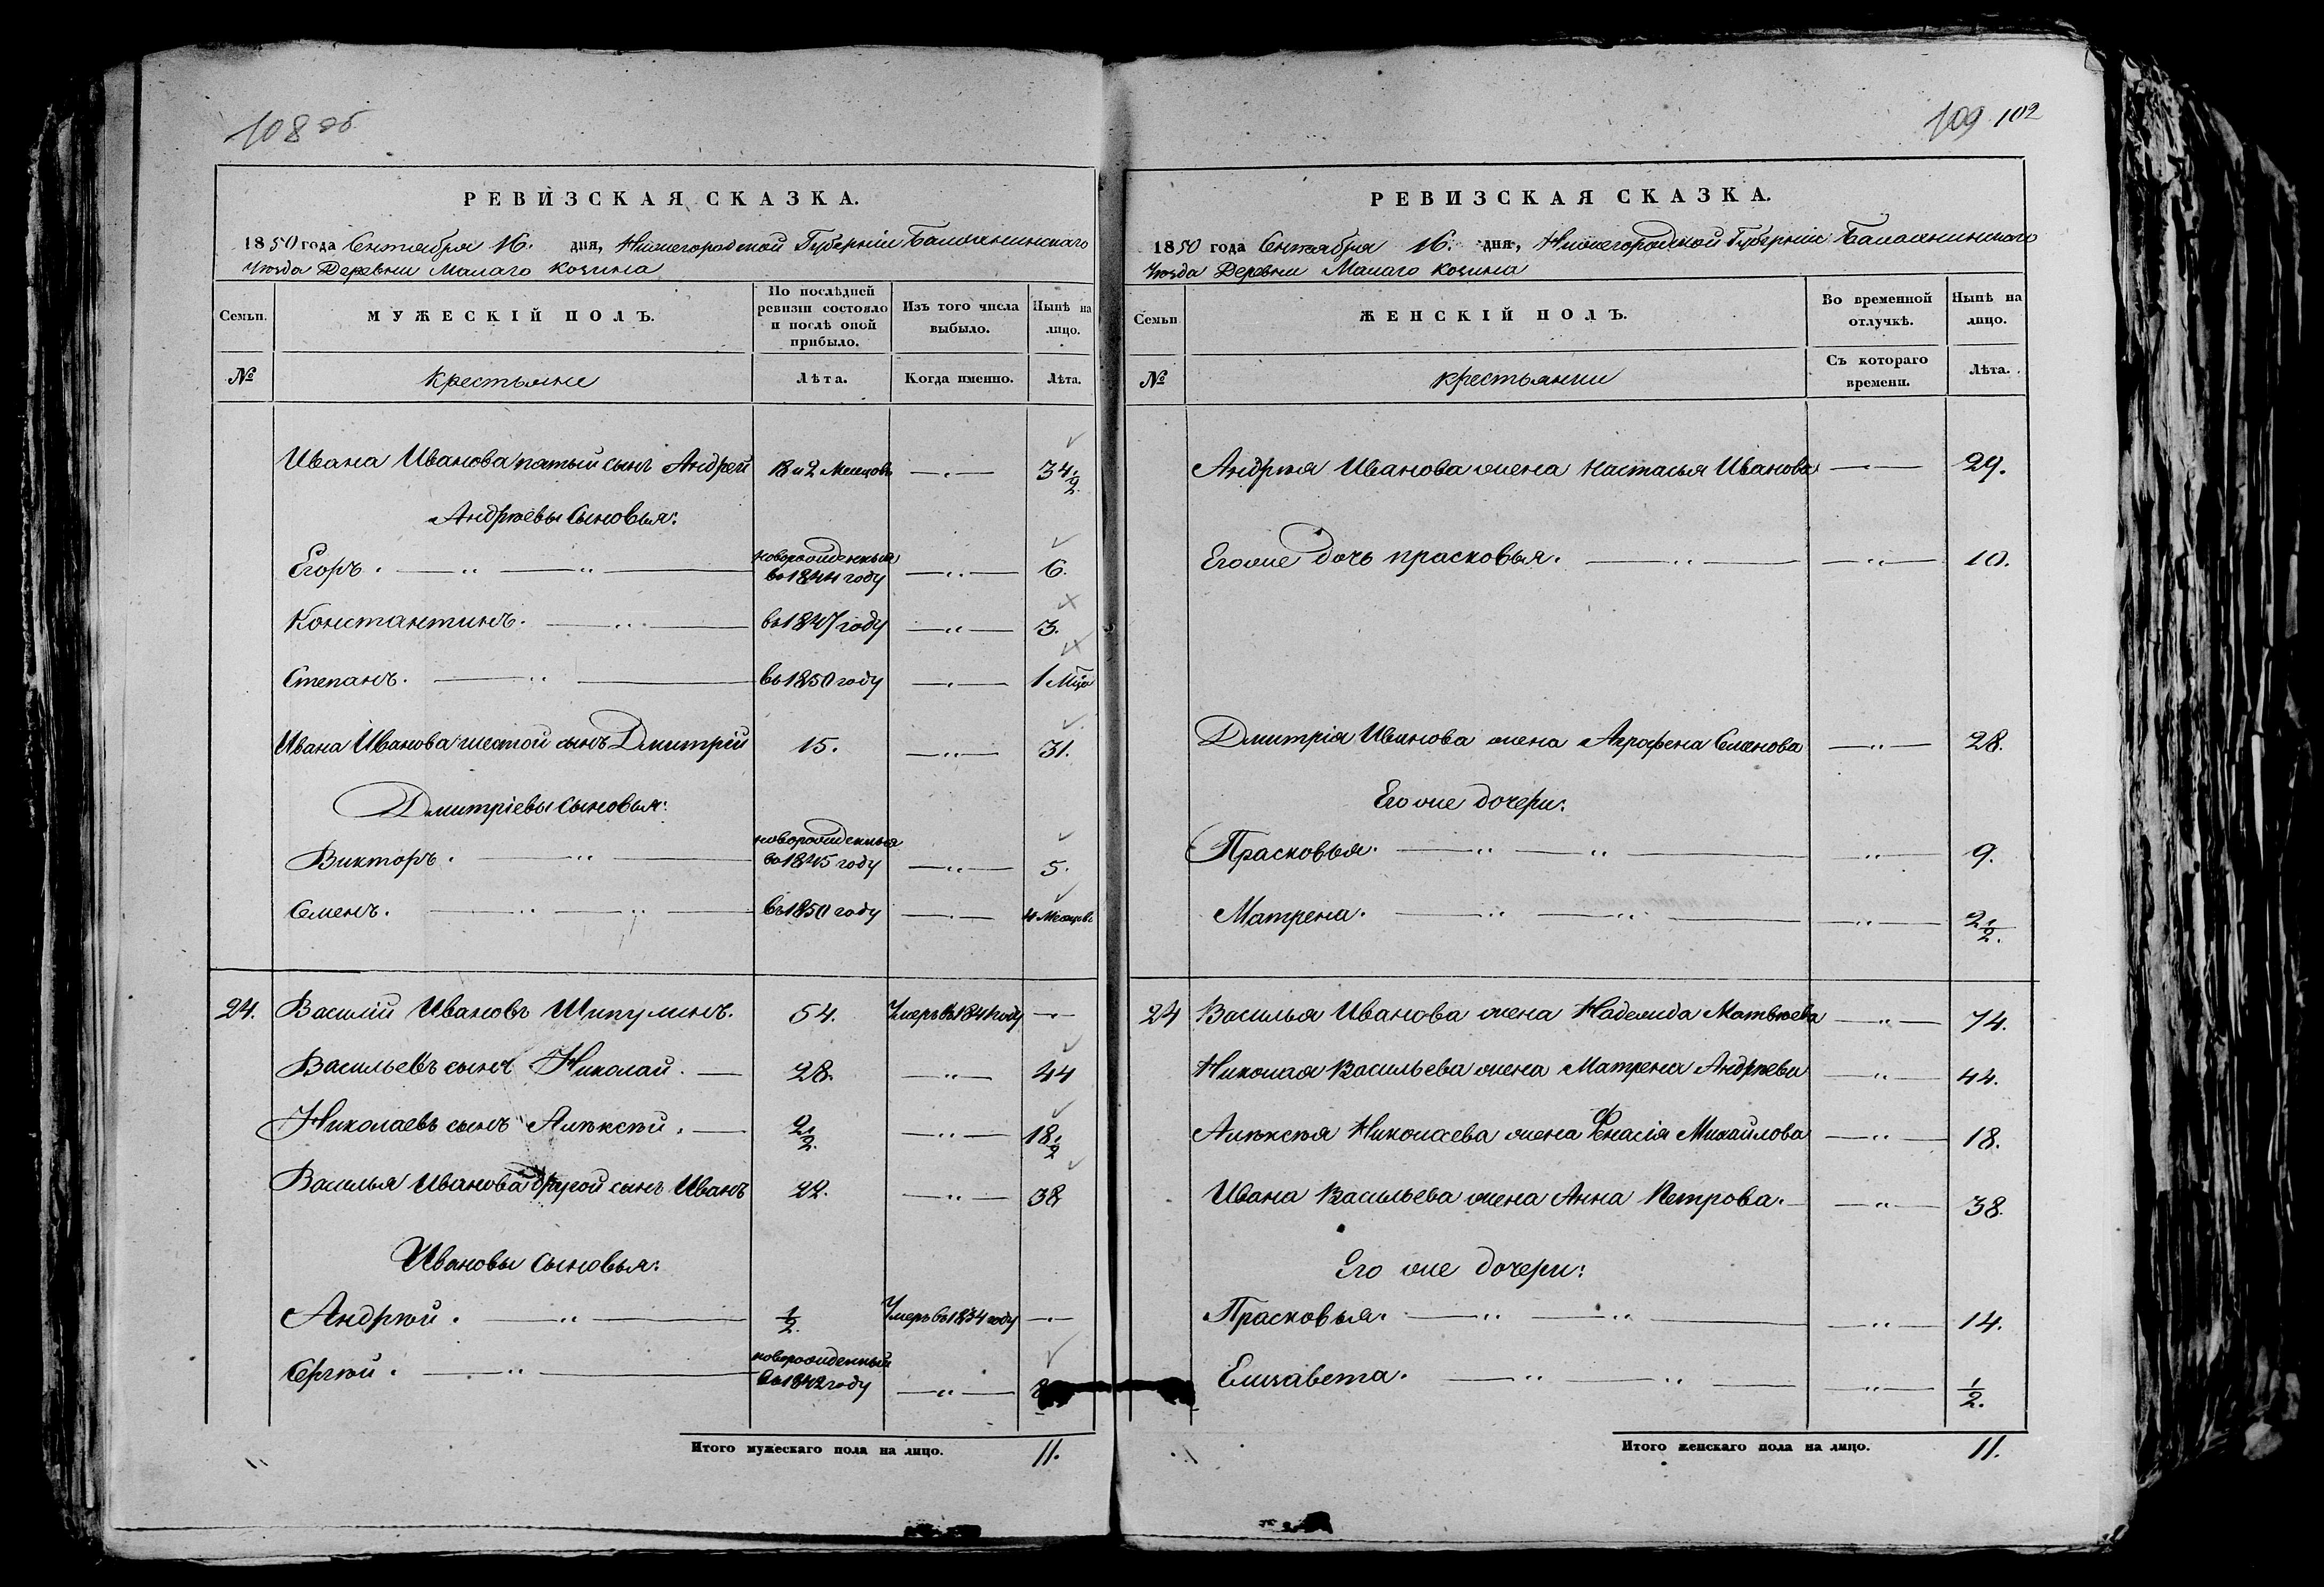 108 об
РЕВИЗСКАЯ СКАЗКА.
1850 года Сентября 16. дня, Нижегородской Губерніи Балахнинскаго
Уѣзда Деревни Малаго Козина
Семьи.
МУЖЕСКІЙ ПОЛЪ.
По послѣдней ревизіи состояло и послѣ оной прибыло.
Изъ того числа выбыло.
Нынѣ на лицо.
№
Крестьяне
Лѣта.
Когда именно.
Лѣта.
Ивана Иванова пятый сынъ Андрей 18 и 2 Месецовъ —„— 34 1/2.
Андрѣевы Сыновья:
Егоръ. новорожденныя во 1844 году —„— 6.
Константинъ. во 1847 году —„— 3.
Степанъ. въ 1850 году —„— 1 Мца
Ивана Иванова шестой сынъ Дмитрій 15. —„— 31.
Дмитріевы Сыновья:
Викторъ. новорожденныя во 1845 году —„— 5.
Семенъ. въ 1850 году —„— 4 Месецовъ
24. Василій Ивановъ Шипулинъ. 54. Умеръ въ 1841 году —„—
Васильевъ сынъ Николай. 28. —„— 44
Николаевъ сынъ Алѣксѣй. 2 1/2. —„— 18 1/2
Василья Иванова другой сынъ Иванъ 22. —„— 38
Ивановы Сыновья:
Андрѣй. 1/2. Умеръ въ 1834 году —„—
Сергѣй. новорожденный во 1842 году —„—
Итого мужескаго пола на лицо. 11.
109 102
РЕВИЗСКАЯ СКАЗКА.
1850 года Сентября 16. дня, Нижегородской Губерніи Балахнинскаго
Уѣзда Деревни Малаго Козина
Семьи
ЖЕНСКІЙ ПОЛЪ.
Во временной отлучкѣ.
Нынѣ на лицо.
№
крестьянки
Съ котораго времени.
Лѣта.
Андрѣя Иванова жена Настасья Иванова —„— 29.
Его же дочь прасковья. —„— 10.
Дмитрія Иванова жена Аграфена Семенова —„— 28.
Его же дочери:
Прасковья. —„— 9.
Матрена. —„— 2 1/2.
24 Василья Иванова жена Надежда Матвѣева —„— 74.
Николая Васильева жена Матрена Андрѣева —„— 44.
Алѣксѣя Николаева жена Михайлова —„— 18.
Ивана Васильева жена Анна Петрова. —„— 38.
Его же дочери:
Прасковья. —„— 14.
Елизавета. —„— 1/2.
Итого женскаго пола на лицо. 11.